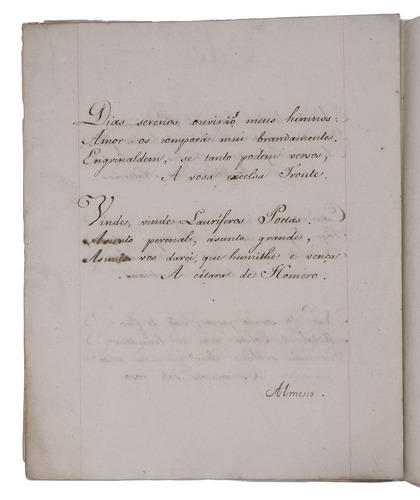 Dias serenos ouvirão meus himnos:
Amor os comporá mui brandamente.
Engrinaldem, se tanto podem versos,
A vosa excelsa Fronte.
Vinde, vinde Lauríferos Poetas.
Asunto perenal, asunto grande,
Asunto vos darei, que humilhe e vença
A cítara de Homero.
Almeno.